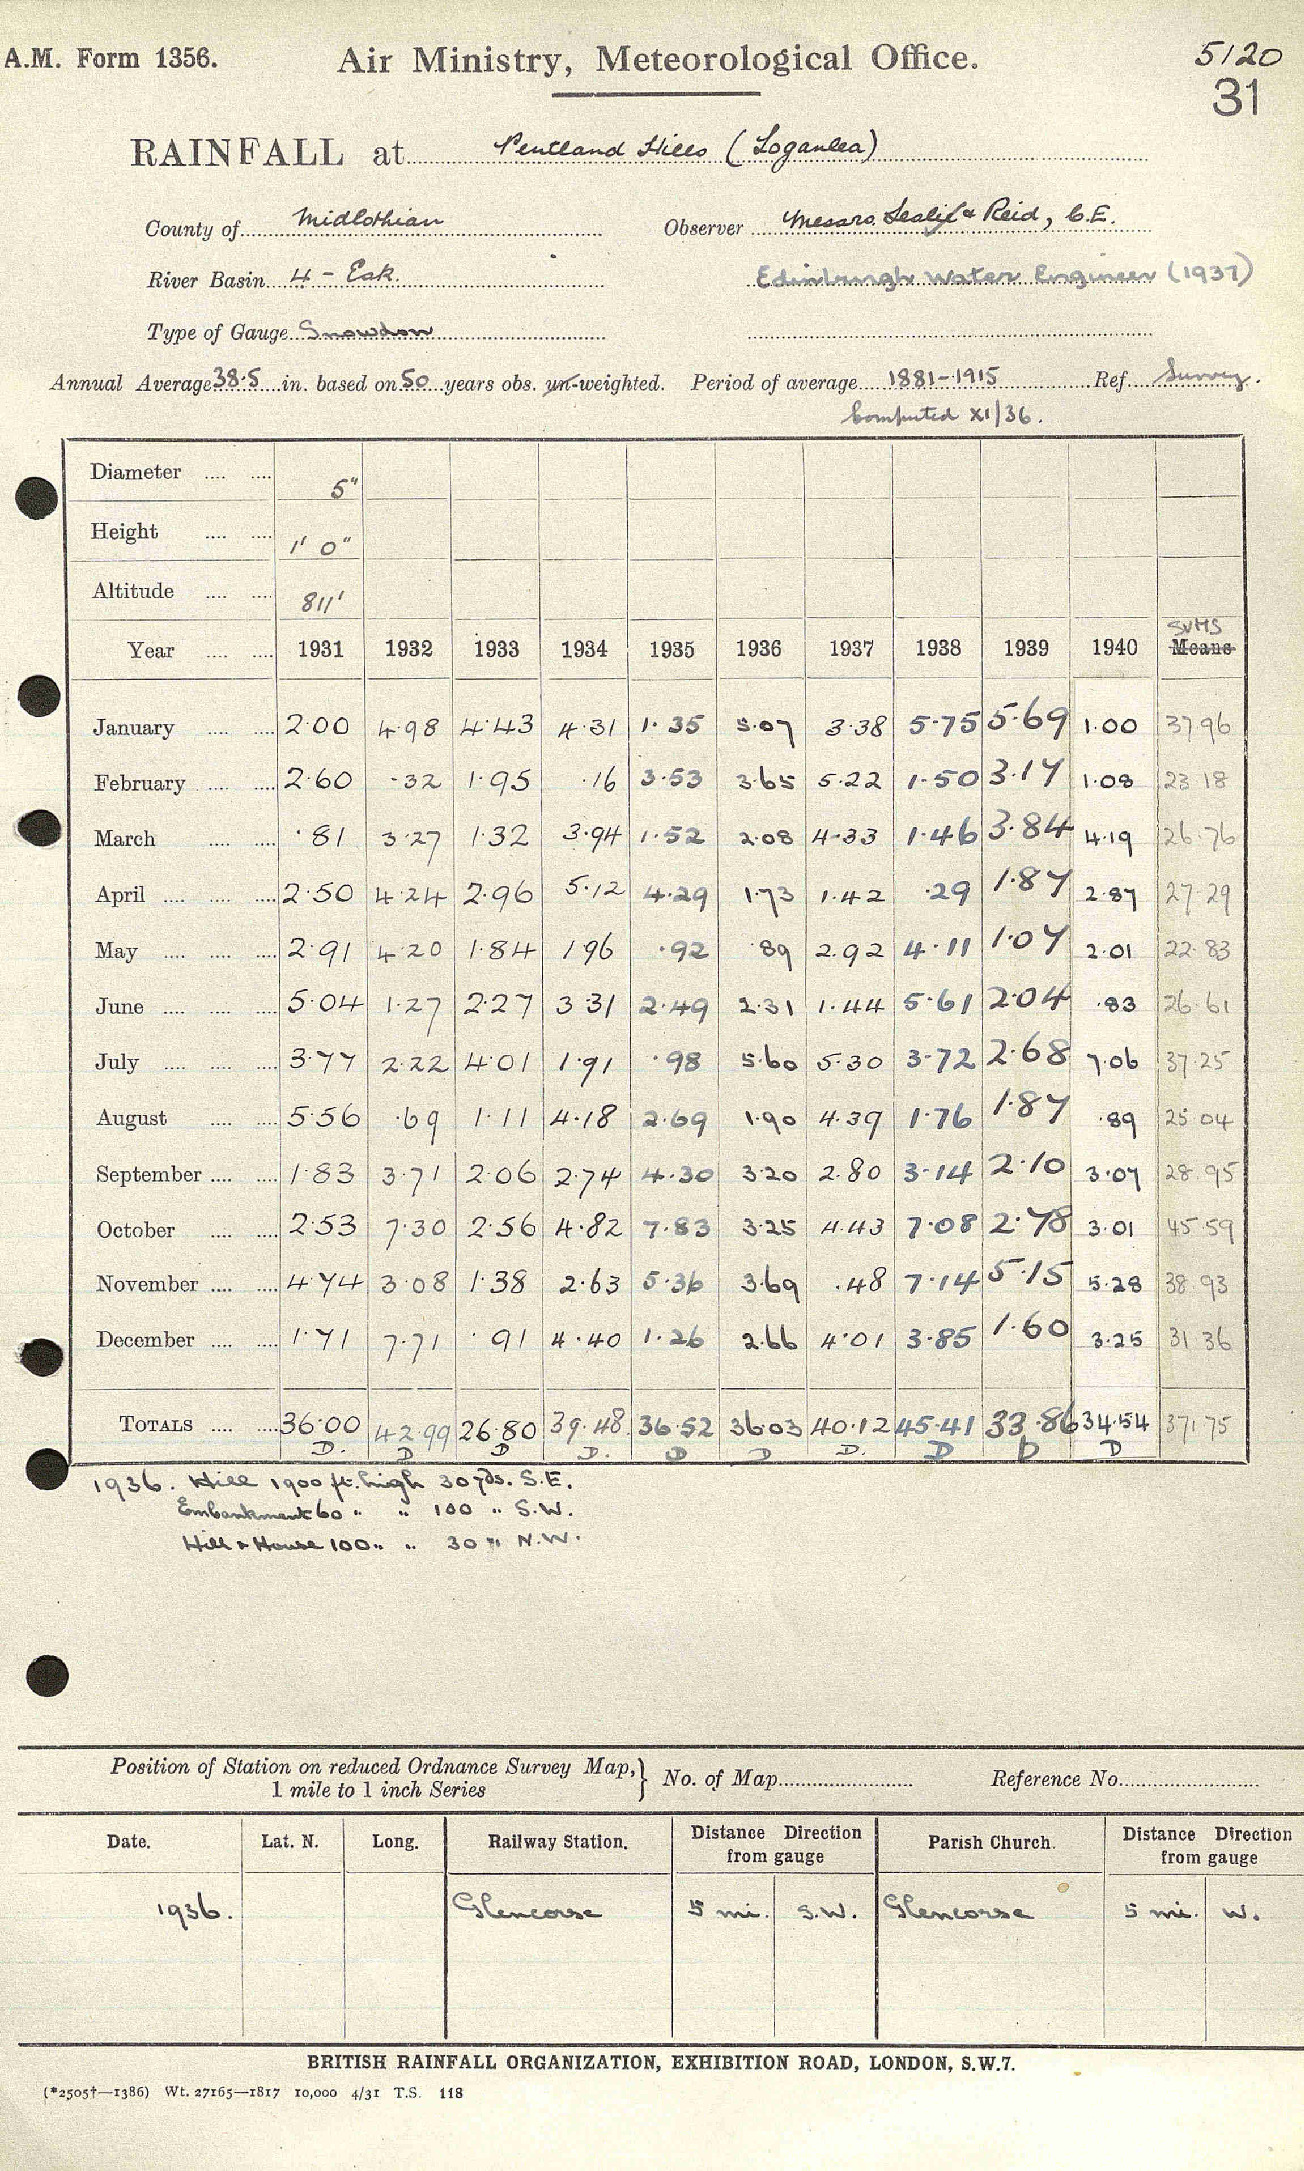 A.M. Form 1356. Air Ministry, Meteorological Office. 5120
31
RAINFALL at Pentland Hills (Loganlea)
County of Midlothian Observer Messrs. Leslie & Reid, C.E.
River Basin 4 - Esk. Edinburgh Water Engineer (1937)
Type of Gauge Snowdon
Annual Average 38.5 in. based on 50 years obs. un-weighted. Period of average 1881-1915 Ref. Survey.
Computed XI/36.
Diameter 5"
Height 1' 0"
Altitude 811'
SUMS
Year 1931 1932 1933 1934 1935 1936 1937 1938 1939 1940 Means
January 2.00 4.98 4.43 4.31 1.35 5.07 3.38 5.75 5.69 1.00 37.96
February 2.60 .32 1.95 .16 3.53 3.65 5.22 1.50 3.17 1.08 23.18
March .81 3.27 1.32 3.94 1.52 2.08 4.33 1.46 3.84 4.19 26.76
April 2.50 4.24 2.96 5.12 4.29 1.73 1.42 .29 1.87 2.87 27.29
May 2.91 4.20 1.84 1.96 .92 .89 2.92 4.11 1.07 2.01 22.83
June 5.04 1.27 2.27 3.31 2.49 2.31 1.44 5.61 2.04 .83 26.61
July 3.77 2.22 4.01 1.91 .98 5.60 5.30 3.72 2.68 7.06 37.25
August 5.56 .69 1.11 4.18 2.69 1.90 4.39 1.76 1.87 .89 25.04
September 1.83 3.71 2.06 2.74 4.30 3.20 2.80 3.14 2.10 3.07 28.95
October 2.53 7.30 2.56 4.82 7.83 3.25 4.43 7.08 2.78 3.01 45.59
November 4.74 3.08 1.38 2.63 5.36 3.69 .48 7.14 5.15 5.28 38.93
December 1.71 7.71 .91 4.40 1.26 2.66 4.01 3.85 1.60 3.25 31.36
TOTALS 36.00 42.99 26.80 39.48 36.52 36.03 40.12 45.41 33.86 34.54 371.75
D. D D D. D D D. D D D
1936. Hill 1900 ft. high 30 yds. S.E.
Embankment 60 " " 100 " S.W.
Hill & House 100 " " 30 " N.W.
Position of Station on reduced Ordnance Survey Map, 1 mile to 1 inch Series } No. of Map Reference No.
Date. Lat. N. Long. Railway Station. Distance Direction from gauge Parish Church. Distance Direction from gauge
1936. Glencorse 5 mi. S.W. Glencorse 5 mi. W.
BRITISH RAINFALL ORGANIZATION, EXHIBITION ROAD, LONDON, S.W.7.
(*2505†—1386) Wt. 27165—1817 10,000 4/31 T.S. 118